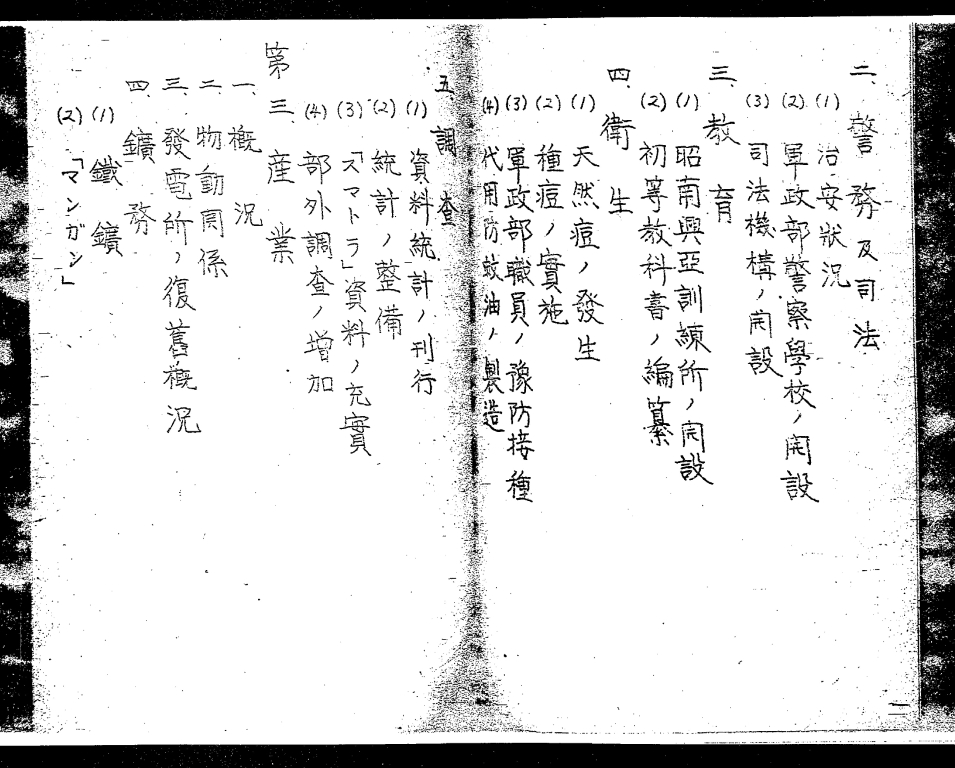 二、警務及司法
(1) 治安狀況
(2) 軍政部警察學校ノ開設
(3) 司法機構ノ開設
三、教育
(1) 昭南興亞訓練所ノ開設
(2) 初等教科書ノ編纂
四、衛生
(1) 天然痘ノ發生
(2) 種痘ノ實施
(3) 軍政部職員ノ豫防接種
(4) 代用防蚊油ノ製造
五、調査
(1) 資料統計ノ刊行
(2) 統計ノ整備
(3) 「スマトラ」資料ノ充實
(4) 部外調査ノ增加
第三 産業
一、概況
二、物動関係
三、發電所ノ復舊概況
四、鑛務
(1) 鐵鑛
(2) 「マンガン」